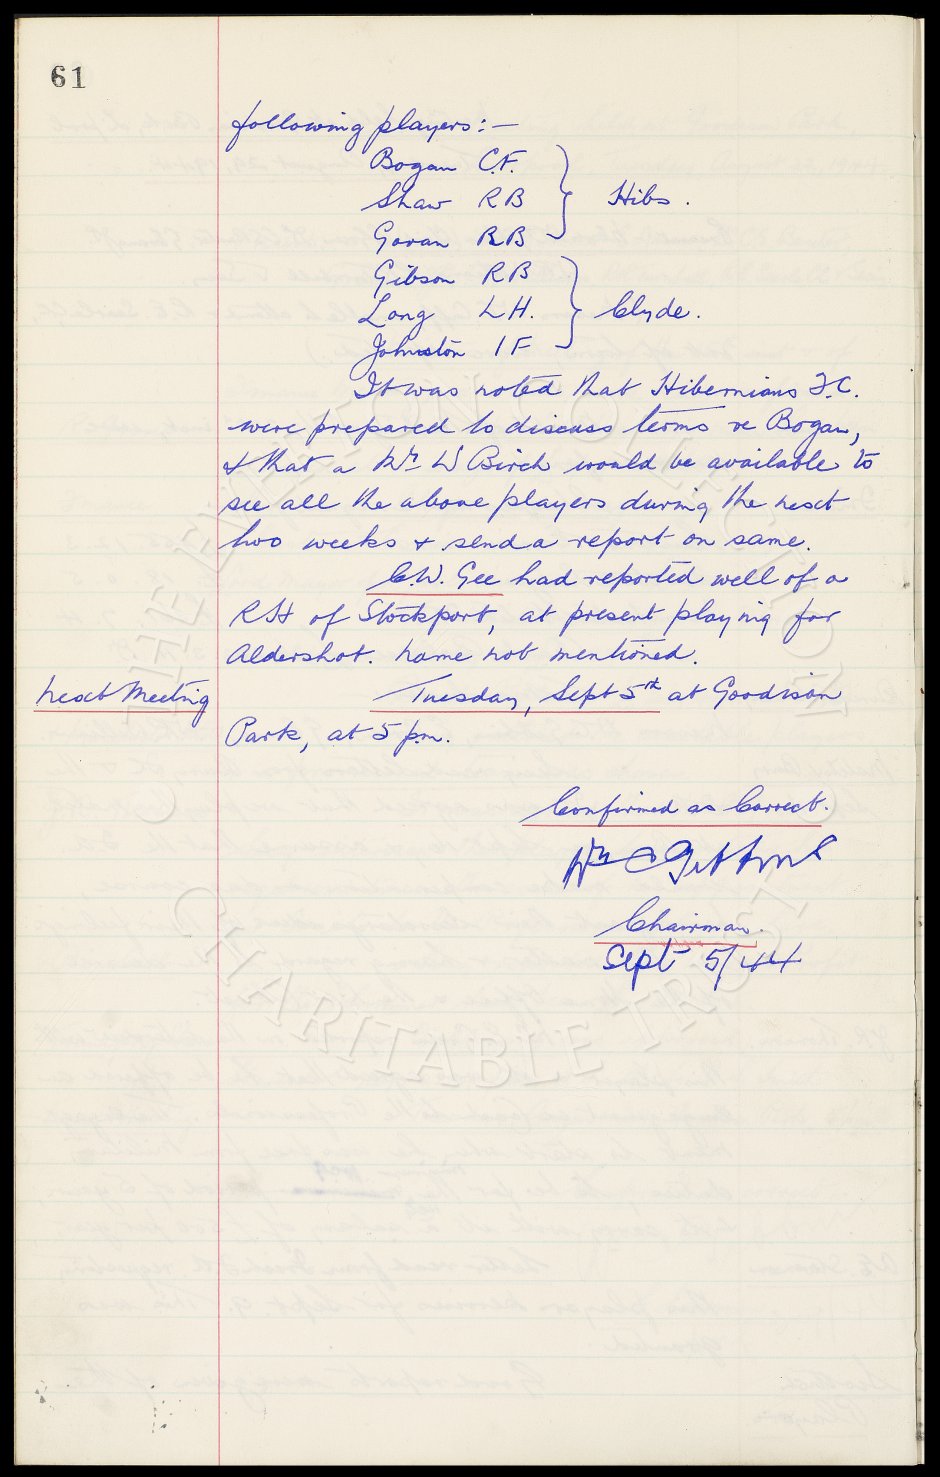 61
following players:—
Bogan C.F.
Shaw RB } Hibs.
Govan RB
Gibson RB
Long LH. } Clyde.
Johnston IF
It was noted that Hibernians F.C.
were prepared to discuss terms re Bogan,
& that a Mr W Birch would be available to
see all the above players during the next
two weeks & send a report on same.
C.W. Gee had reported well of a
RH of Stockport, at present playing for
Aldershot. name not mentioned.
Next Meeting Tuesday, Sept 5th at Goodison
Park, at 5 pm.
Confirmed as Correct.
Wm C Gibbins
Chairman.
Sept 5/44
THE EVERTON COLLECTION
CHARITABLE TRUST